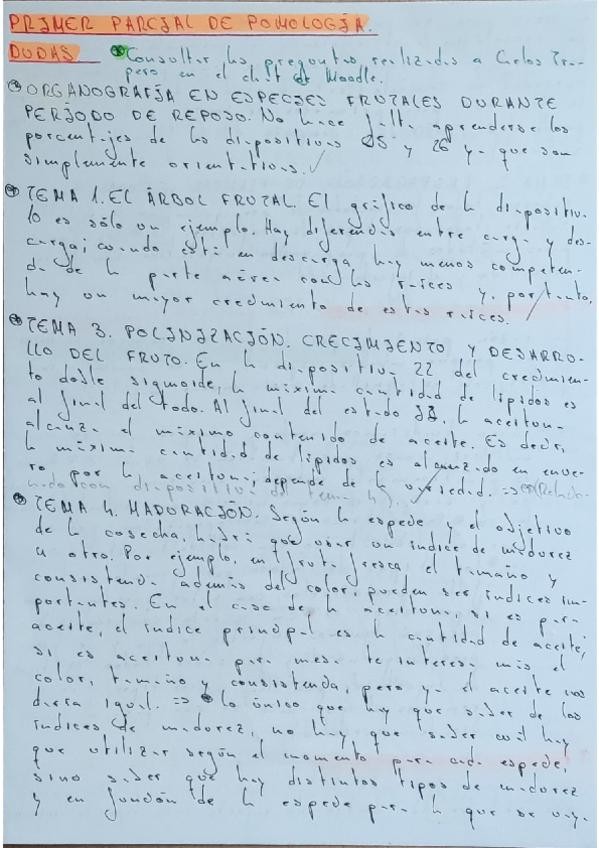 PRIMER PARCIAL DE POMOLOGÍA.
DUDAS
* Consultar las preguntas realizadas a Carlos Tra-
pero en el chat de Moodle.
* ORGANOGRAFÍA EN ESPECIES FRUTALES DURANTE
PERÍODO DE REPOSO. No hace falta aprenderse los
porcentajes de las diapositivas 25 y 26 ya que son
simplemente orientativos. ✓
* TEMA 1. EL ÁRBOL FRUTAL. El gráfico de la diapositiva
10 es sólo un ejemplo. Hay diferencia entre carga y des-
carga; cuando está en descarga hay menos competen-
cia de la parte aérea con las raíces y, por tanto,
hay un mayor crecimiento de estas raíces.
* TEMA 3. POLINIZACIÓN. CRECIMIENTO Y DESARRO-
LLO DEL FRUTO. En la diapositiva 22 del crecimien-
to doble sigmoide, la máxima cantidad de lípidos es
al final del todo. Al final del estado II, la aceituna
alcanza el máximo contenido de aceite. Es decir,
la máxima cantidad de lípidos es alcanzada en ene-
ro por la aceituna; depende de la variedad. ⇒ (Relacio-
nado con diapositiva del tema 4).
* TEMA 4. MADURACIÓN. Según la especie y el objetivo
de la cosecha, habrá que usar un índice de madurez
u otro. Por ejemplo, en fruta fresca, el tamaño y
consistencia además del color, pueden ser índices im-
portantes. En el caso de la aceituna, si es para
aceite, el índice principal es la cantidad de aceite;
si es aceituna para mesa te interesa más el
color, tamaño y consistencia, pero ya el aceite nos
daría igual. ⇒ lo único que hay que saber de los
índices de madurez, no hay que saber cuál hay
que utilizar según el momento para cada especie,
sino saber que hay distintos tipos de madurez
y en función de la especie para la que se vaya